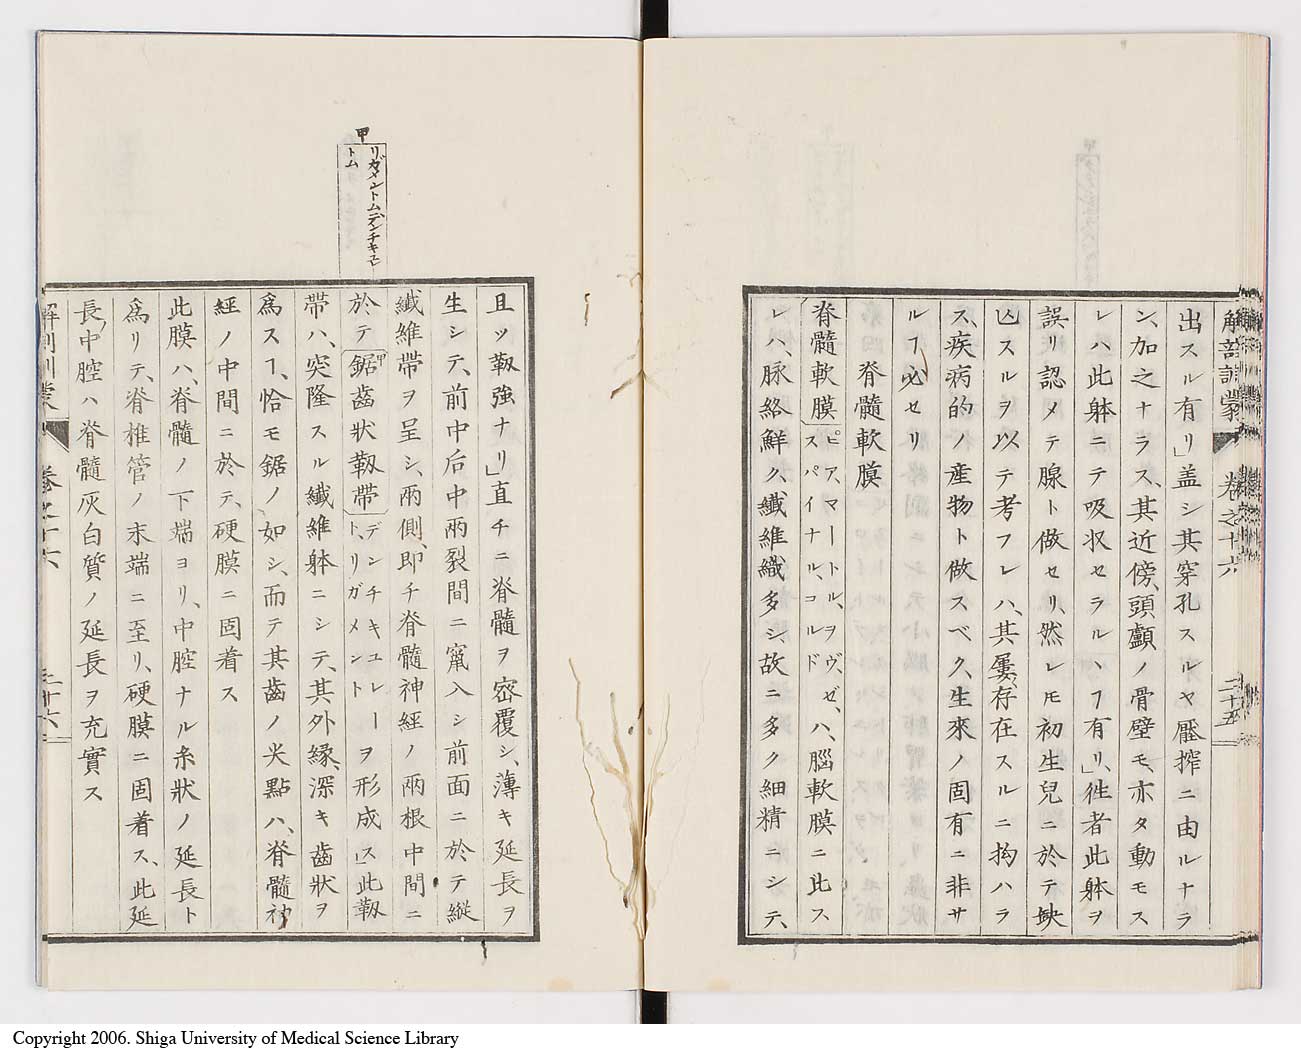 解剖訓蒙 卷之十六 二十五
出スル有リ」盖シ其穿孔スルヤ壓搾ニ由ルナラ
ン、加之ナラス、其近傍、頭顱ノ骨壁モ、亦タ動モス
レハ此躰ニテ吸収セラルヽヿ有リ」徃者此躰ヲ
誤リ認メテ腺ト做セリ、然レモ初生兒ニ於テ缺
亾スルヲ以テ考フレハ、其屢〻存在スルニ拘ハラ
ス、疾病的ノ産物ト做スベク、生來ノ固有ニ非サ
ルヿ必セリ
脊髓軟膜
脊髓軟膜 ピア、マートル、ヲヴ、ゼ、スパイナル、コルド ハ、腦軟膜ニ比ス
レハ、脉絡鮮ク、纖維織多シ、故ニ多ク細精ニシテ、
甲 リガメントム、デンチキュラトム
且ツ靱強ナリ」直チニ脊髓ヲ宻覆シ、薄キ延長ヲ
生シテ、前中后中兩裂間ニ竄入シ前面ニ於テ縱
纖維帶ヲ呈シ、兩側、即チ脊髓神經ノ兩根中間ニ
於テ甲鋸齒狀靱帶 デンチキュレート、リガメント ヲ形成ス」此靱
帶ハ、突隆スル纖維躰ニシテ、其外緣、深キ齒狀ヲ
爲スヿ、恰モ鋸ノ如シ、而テ其齒ノ尖點ハ、脊髓神
經ノ中間ニ於テ、硬膜ニ固着ス
此膜ハ、脊髓ノ下端ヨリ、中腔ナル糸狀ノ延長ト
爲リテ、脊椎管ノ末端ニ至リ、硬膜ニ固着ス、此延
長、中腔ハ脊髓灰白質ノ延長ヲ充實ス
解剖訓蒙 卷之十六 二十六